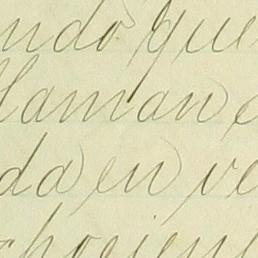 ndo que
llaman e
da en ve